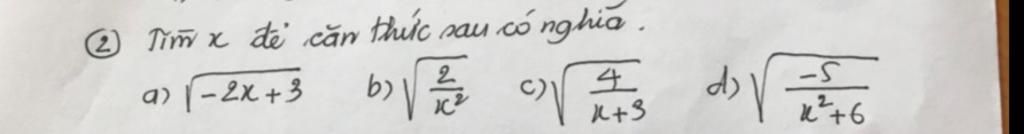 ② Tìm x để căn thức sau có nghĩa.
a) √(-2x+3) b) √(2/x²) c) √(4/(x+3)) d) √(-5/(x²+6))